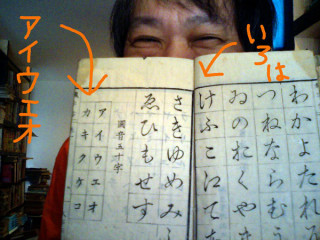 いろは
わかよたれ
つねならむ
ゐのおくや
けふこ江て
さきゆめみし
ゑひもせす
音五十字
アイウエオ
カキクケコ
アイウエオ